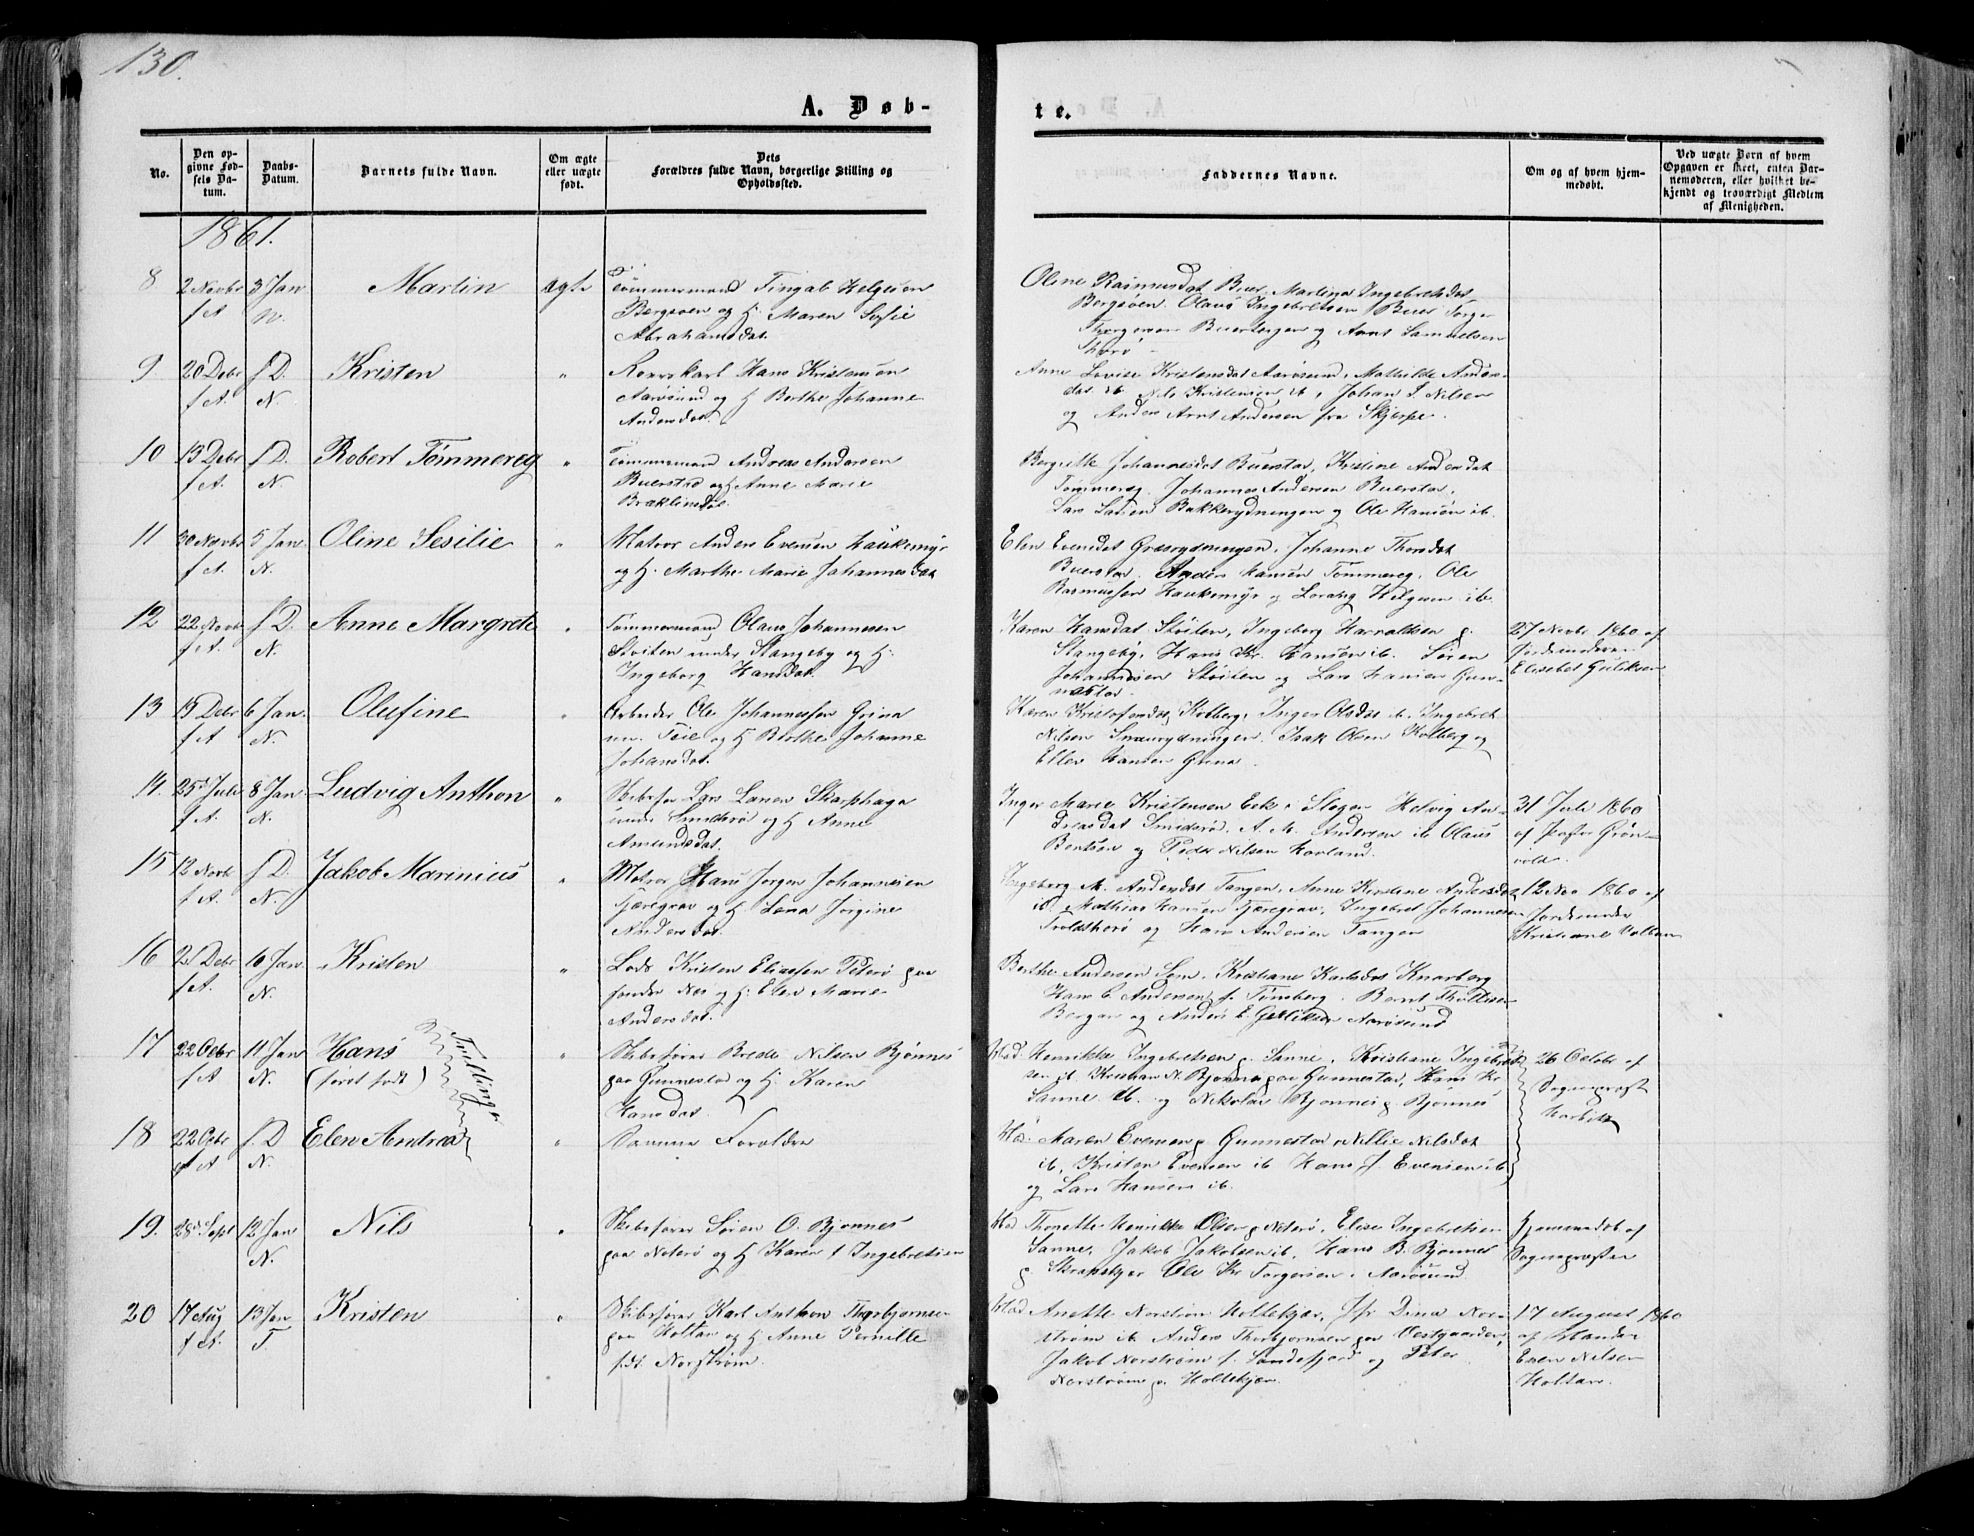 130.
A. Døb-
te.
No.
Den op-
givne Fød-
sels Da-
tum.
Daabs-
Datum.
Barnets fulde Navn.
Om ægte
eller uægte
født.
Dets
Forældres fulde Navn, borgerlige Stilling og
Opholdssted.
Faddernes Navne.
Om og af hvem hjem-
medøbt.
Ved uægte Børn af hvem
Opgaven er skeet, enten Bar-
nemoderen, eller hvilket be-
kjendt og troværdigt Medlem
af Menigheden.
1861.
8
2 Novbr
f A
3 Jan
N.
Martin
ægte
Tømmermand Fingal Helgesen
Bergsøen og H. Maren Sofie
Abrahamsdat.
Oline Rasmusdat Buer, Martina Ingebretsdat
Bergsøen. Olaus Ingebretsen Buer Torger
Thorgersen Buerbergen og Arnt Samuelsen
Thorø
9
20 Debr
f A.
s. D.
N.
Kristen
"
Rorskarl Hans Kristensen
Aarøsund og H Berthe Johanne
Andersdat.
Anne Lovise Kristensdat Aarøsund, Mathilde Anders-
dat ib Nils Kristensen ib, Johan L Nilsen
og Anders Arnt Andersen fra Skjerpe.
10
13 Debr
f A.
s D.
N.
Robert Tømmereg
"
Tømmermand Andreas Andersen
Buerstad og H Anne Marie
Braklinsdat.
Bergitte Johannesdat Buerstad, Kristine Andersdat
Tømmereg. Johannes Andersen Buerstad,
Lars Larsen Bakkerydningen og Ole Hansen ib.
11
30 Novbr
f A.
5 Jan
N.
Oline Sesilie
"
Matros Anders Evensen Haukemyr
og H. Marthe Marie Johannesdat
Elen Evensdat Græsrydningen, Johanne Thorsdat
Buerstad. Anders Hansen Tømmereg, Ole
Rasmussen Haukemyr og Lorentz Helgesen ib.
12
22 Novb
f A.
s D.
N.
Anne Margrete
"
Tømmermand Olaus Johannesen
Støiten under Stangeby og H.
Ingeborg Hansdat.
Karen Hansdat Støiten, Ingeborg Harraldsen p.
Stangeby, Hans Kr. Hansen ib. Søren
Johannesen Støiten og Lars Hansen Gun-
nestad.
27 Novbr 1860 af
Jordemoderen
Elisabet Guliksen
13
15 Debr
f A
6 Jan.
N.
Olufine
"
Arbeider Ole Johannessen Grina
un. Teie og H Berthe Johanne
Johansdat.
Karen Kristofersdat, Kolberg, Inger Olsdat ib. Ingebret
Nilsen Snaurydningen. Isak Olsen Kolberg og
Ellev Hansen Grina.
14.
25 Juli
f A.
8 Jan
N.
Ludvig Anthon
"
Skibsfør Lars Larsen Skarphaga
under Smidsrø og H Anne
Amundsdat.
Inger Marie Kristensen Eck, Slogen Helvig An-
dreasdat Smidsrød, A. M. Andersen ib Olaus
Bentsen og Peder Nilsen Hovland.
31 Juli 1860
af Pastor Grøn-
vold.
15
12 Novb
f A.
s. D.
N.
Jakob Marinius
"
Matros Hans Jørgen Johannesen
Fjæregrav og H. Lena Jørgine
Andersdat.
Ingeborg M. Andersdat Tangen, Anne Kirstine Andersdat
ib. Mathias Hansen Fjæregrav, Ingebret Johannesen
Troldtherø og Hans Andersen Tangen
12 Nov 1860 af
Jordemoder
Kristiane
16
2 Debr
f A.
10 Jan
N.
Kristen
"
Lods Kristen Eliassen Peterø paa
søndre Nes og H. Elen Marie
Andersdat.
Berthe Andersen Sem. Kristiane Karlsdat Knarberg
Hans C Andersen f. Tønsberg. Bernt Thollefsen
Bergan og Anders E. Gulliksen Aarøsund
17
22 Octbr
f A
11 Jan
N.
Hans
(først født)
Tvillinger
"
Skibsfører Brede Nilsen Bjønnes
paa Gunnestad og H. Karen
Hansdat.
Mad. Henrikke Ingebretsen p. Sanne. Kristiane Ingebret-
sen ib. Kristian N. Bjønnes paa Gunnestad, Hans Kr.
Sanne ib. og Nikolai Bjønnes p. Bjønnes
26 Octobr af
Sogneprest
18
22 Ocbr
f A
s. D
N.
Elen Andrea
"
Samme Forældre
Mad. Maren Evensen p Gunnestad Nillie Nilsdat
ib, Kristen Evensen ib Hans J. Evensen ib
og Lars Hansen ib.
19.
28 Sept
12 Jan
N.
Nils
"
Skibsfører Søren O. Bjønnes
paa Noterø og H Karen f Ingebretsen
Mad Thonette Henrikke Olsen p Noterø, Elise Ingebretsen
Sanne, Jakob Jakobsen ib, Hans B. Bjønnes
p Skrapskjær Ole Kr Torgersen. Aarøsund
hjemmedøbt af
Sognepresten
20
17 Aug
f A.
13 Jan
T.
Kristen
"
Skibsfører Karl Anthon Thorbjørnsen
paa Holtan og H Anne Pernille
født Norstrøm.
Mad Anette Norstrøm Holtekjær, Jfr Dina Nor-
strøm ib Anders Thorbjørnsen paa Vestgaarden,
Jakob Norstrøm f. Sandefjord og Peter
Norstrøm p. Holtekjær.
17 August 1860
af
Even Nilsen
Holtan.